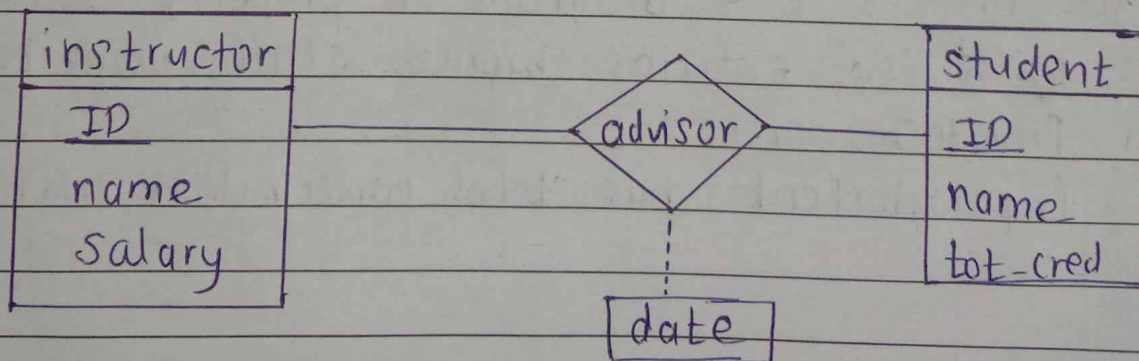 instructor
ID
name
salary
advisor
date
student
ID
name
tot_cred